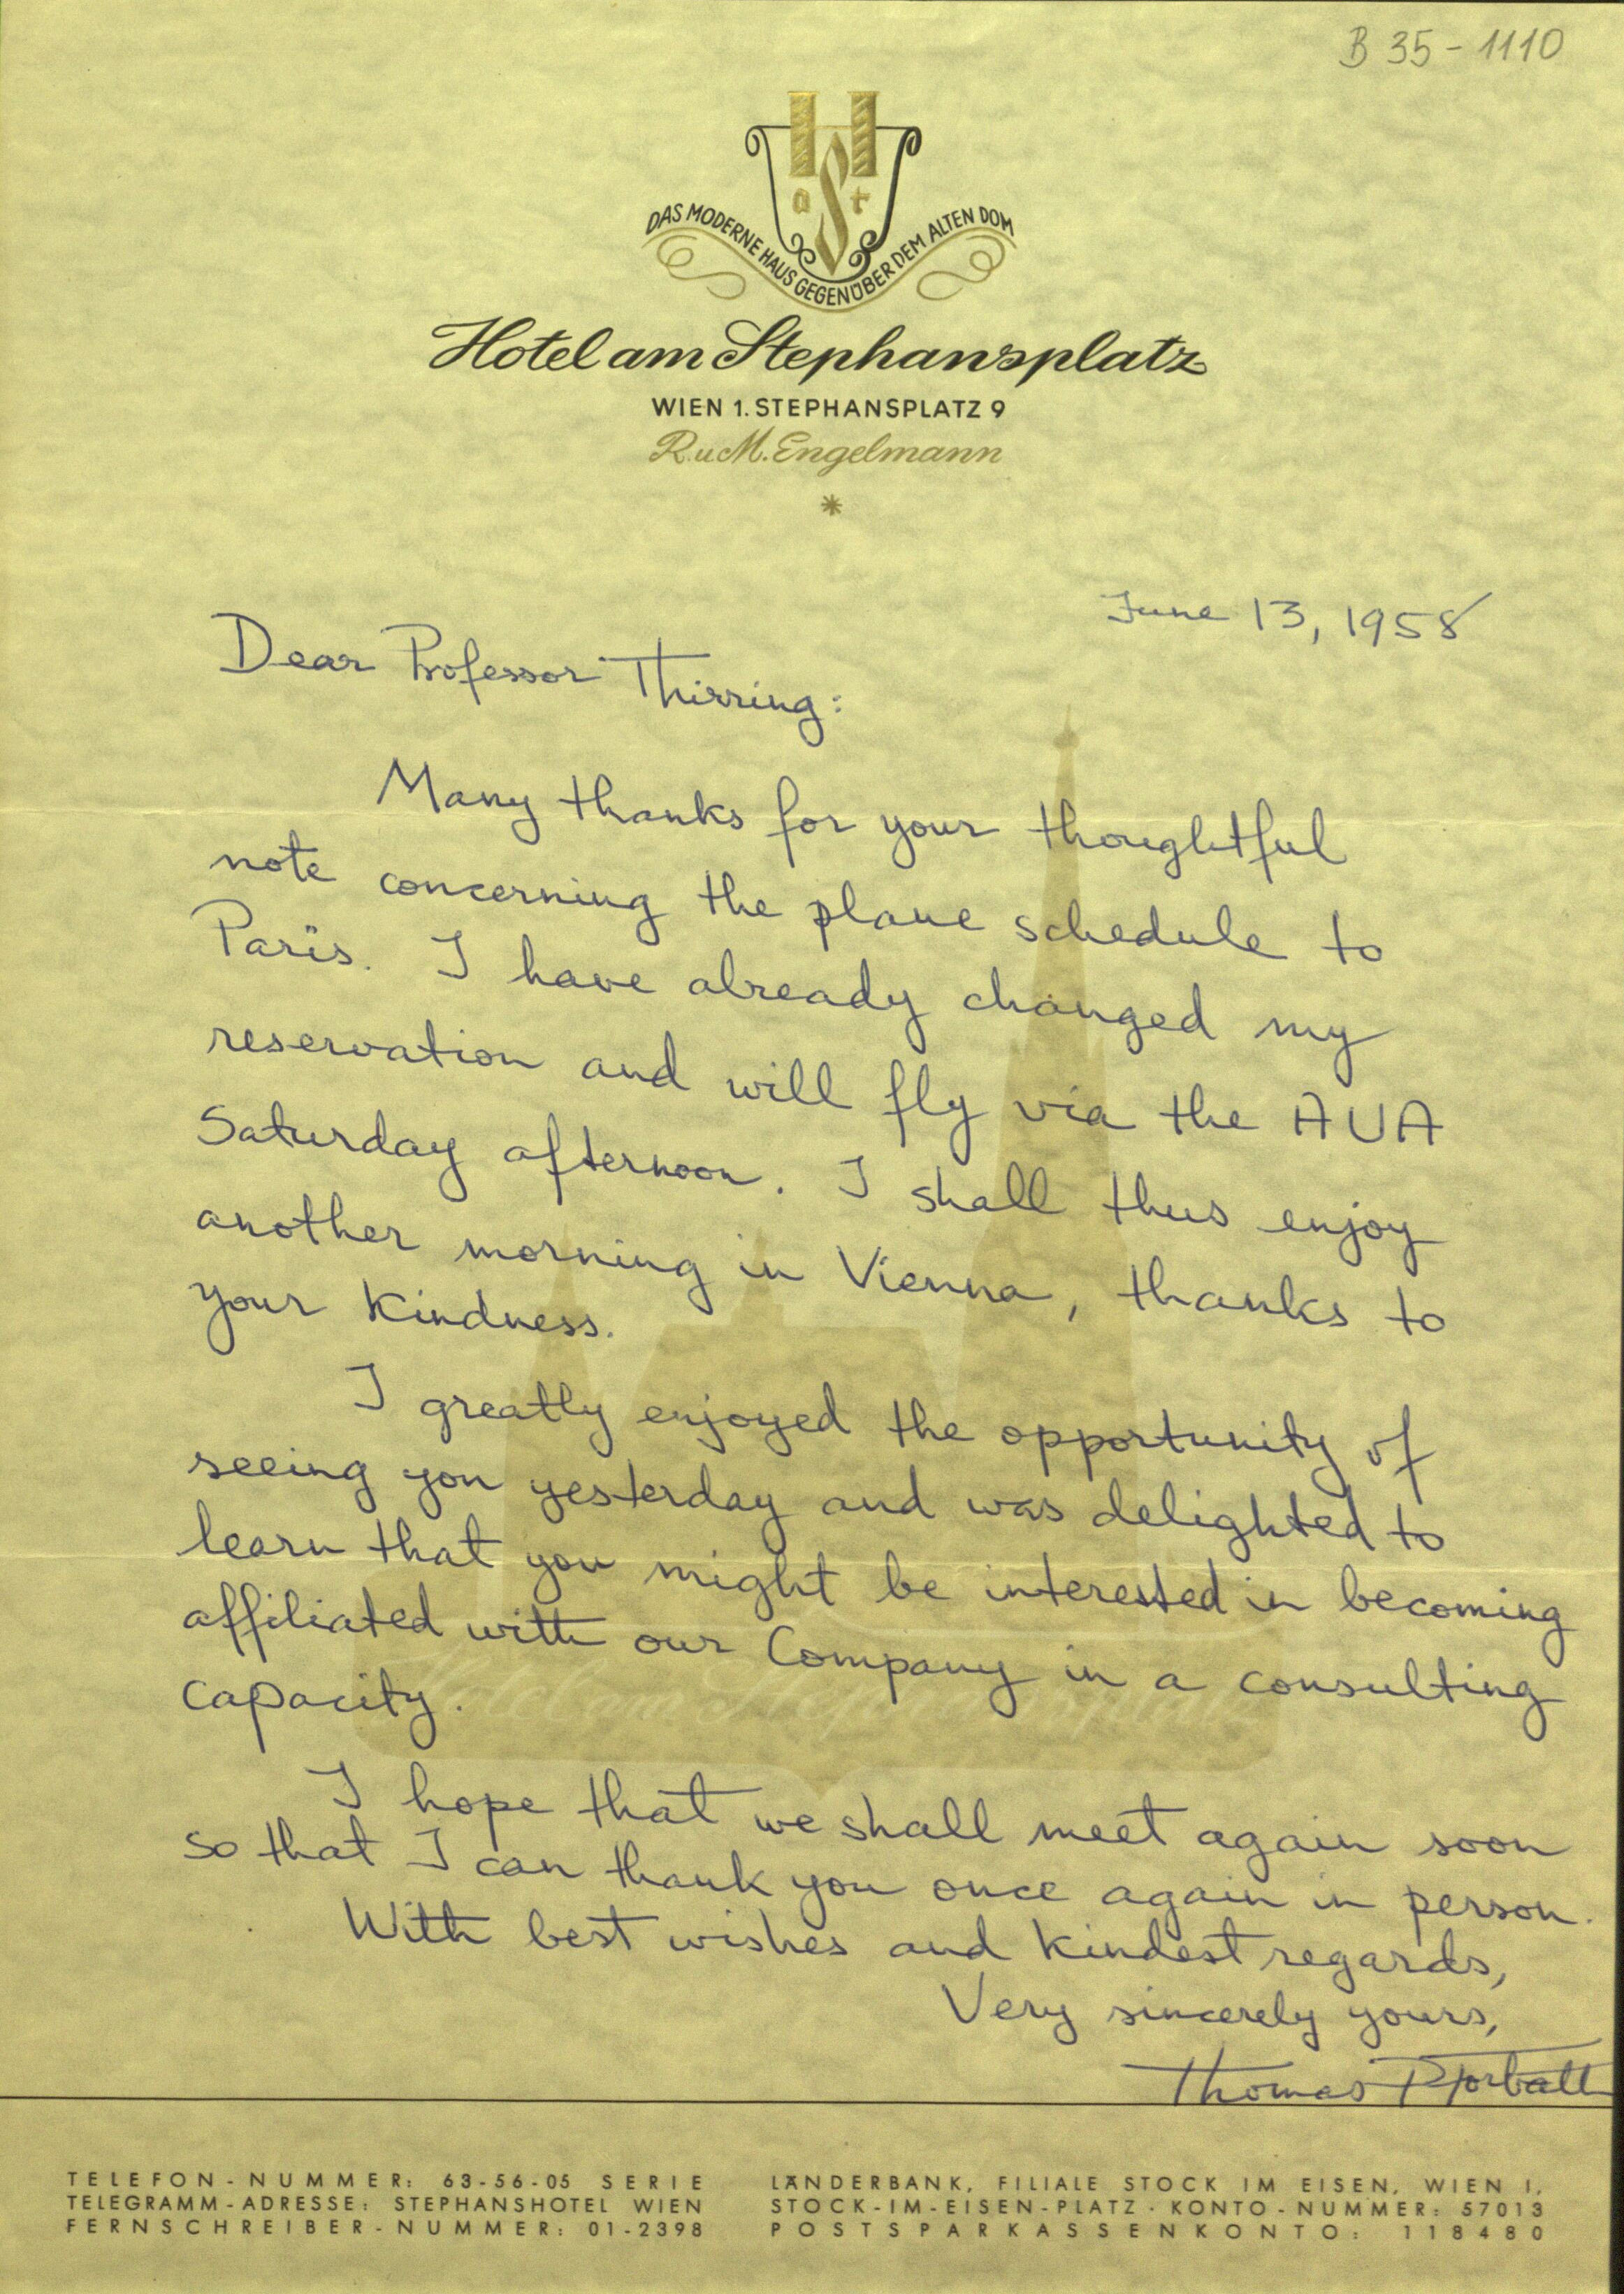 B 35-1110
H
a St t
DAS MODERNE HAUS GEGENÜBER DEM ALTEN DOM
Hotel am Stephansplatz
WIEN 1. STEPHANSPLATZ 9
R. u. M. Engelmann
*
June 13, 1958
Dear Professor Thirring:
Many thanks for your thoughtful
note concerning the plane schedule to
Paris. I have already changed my
reservation and will fly via the AUA
Saturday afternoon. I shall thus enjoy
another morning in Vienna, thanks to
your kindness.
I greatly enjoyed the opportunity of
seeing you yesterday and was delighted to
learn that you might be interested in becoming
affiliated with our Company in a consulting
capacity.
Hotel am Stephansplatz
I hope that we shall meet again soon
so that I can thank you once again in person.
With best wishes and kindest regards,
Very sincerely yours,
Thomas
TELEFON-NUMMER: 63-56-05 SERIE
TELEGRAMM-ADRESSE: STEPHANSHOTEL WIEN
FERNSCHREIBER-NUMMER: 01-2398
LÄNDERBANK, FILIALE STOCK IM EISEN, WIEN I,
STOCK-IM-EISEN-PLATZ · KONTO-NUMMER: 57013
POSTSPARKASSENKONTO: 118480